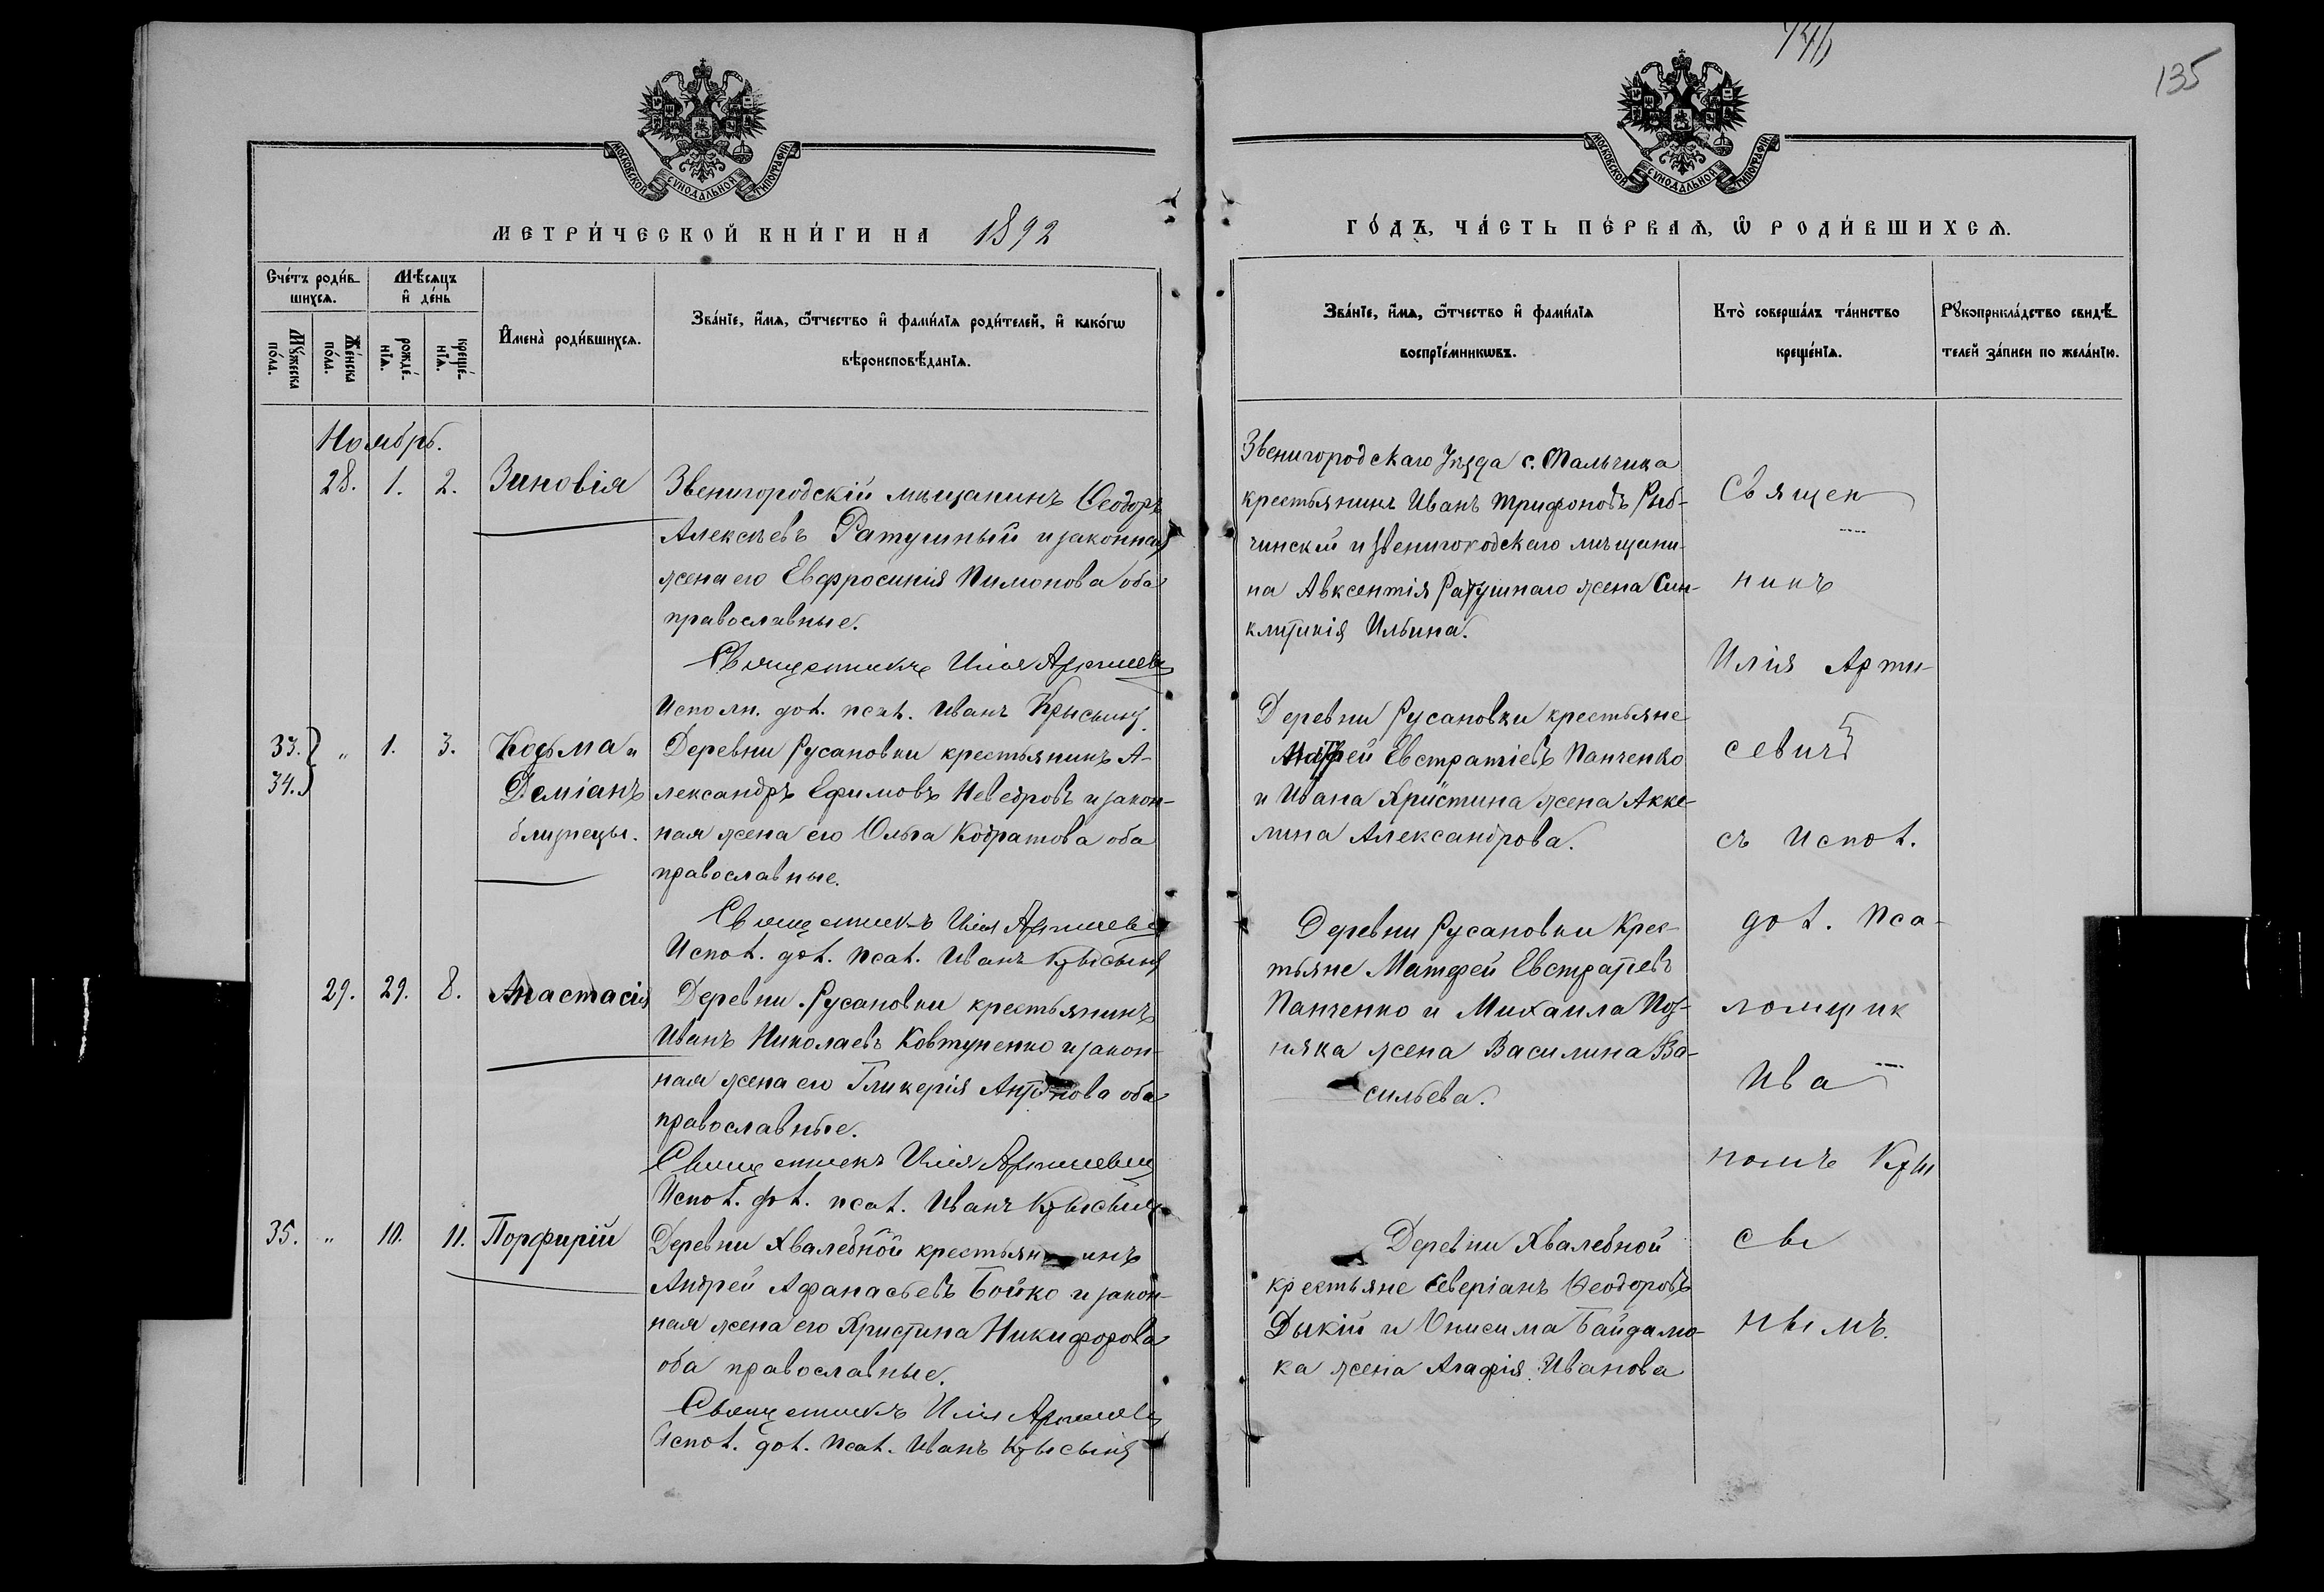 746
135
МОСКОВСКОЙ СѴНОДАЛЬНОЙ ТИПОГРАФІИ
МЕТРИ́ЧЕСКОЙ КНИ́ГИ НА 1892
Сче́тъ роди́в-
шихся.
Мѣсяцъ
и҆ де́нь
Мꙋ́жеска
по́ла.
Же́нска
по́ла.
рожде́-
нїѧ.
креще́-
нїѧ.
И҆мена̀ роди́вшихсѧ.
Зва́нїе, и҆́мѧ, ѻ҆́тчество и҆ фами́лїѧ роди́телей, и҆ како́гѡ
вѣроисповѣ́данїѧ.
Ноябрь.
28. 1. 2. Зиновія
Звенигородскій мѣщанинъ Ѳеодоръ
Алексѣевъ Ратушный и законная
жена его Евфросинія Пимонова оба
православные.
Священникъ Илія Артисевич
Исполн. дол. псал. Иванъ Крысинъ
33. 34. „ 1. 3. Козьма и
Деміанъ
близнецы.
Деревни Русановки крестьянинъ А-
лександръ Ефимовъ Неведровъ и закон-
ная жена его Ольга Кодратова оба
православные.
Священникъ Илія Артисевич
Испол. дол. псал. Иванъ Крысинъ
29. 29. 8. Анастасія
Деревни Русановки крестьянинъ
Иванъ Николаевъ Ковтуненко и закон-
ная жена его Гликерія Антонова оба
православные.
Священникъ Илія Артисевич
Испол. дол. псал. Иванъ Крысинъ
35. „ 10. 11. Порфирій
Деревни Хвалебной крестьянинъ
Андрей Афанасьевъ Бойко и закон-
ная жена его Христина Никифорова
оба православные.
Священникъ Илія Артисевич
Испол. дол. псал. Иванъ Крысинъ
МОСКОВСКОЙ СѴНОДАЛЬНОЙ ТИПОГРАФІИ
ГО́ДЪ, ЧА́СТЬ ПЕ́РВАѦ, Ѽ РОДИ́ВШИХСѦ.
Зва́нїе, и҆́мѧ, ѻ҆́тчество и҆ фами́лїѧ
воспрїе́мникѡвъ.
Кто̀ соверша́лъ та́инство
креще́нїѧ.
Рꙋкоприкла́дство свидѣ́-
телей за́писи по жела́нїю.
Звенигородскаго Уѣзда с. Тальчика
крестьянинъ Иванъ Трифоновъ Рыб-
чинскій и звенигородскаго мѣщани-
на Авксентія Ратушнаго жена Син-
клитикія Ильина.
Деревни Русановки крестьяне
Матфей Евстратіевъ Панченко
и Ивана Христина жена Акке-
лина Александрова.
Деревни Русановки Крес-
тьяне Матфей Евстратіевъ
Панченко и Михаила Поз-
няка жена Василина Ва-
сильева.
Деревни Хвалебной
крестьяне Северіанъ Ѳеодоровъ
Дыкій и Онисима Байдамо-
ка жена Агафія Иванова
Священ
никъ
Илія Арти-
севичъ
съ испол.
дол. Пса-
ломщик
Ива
номъ Кры
сы
нымъ.